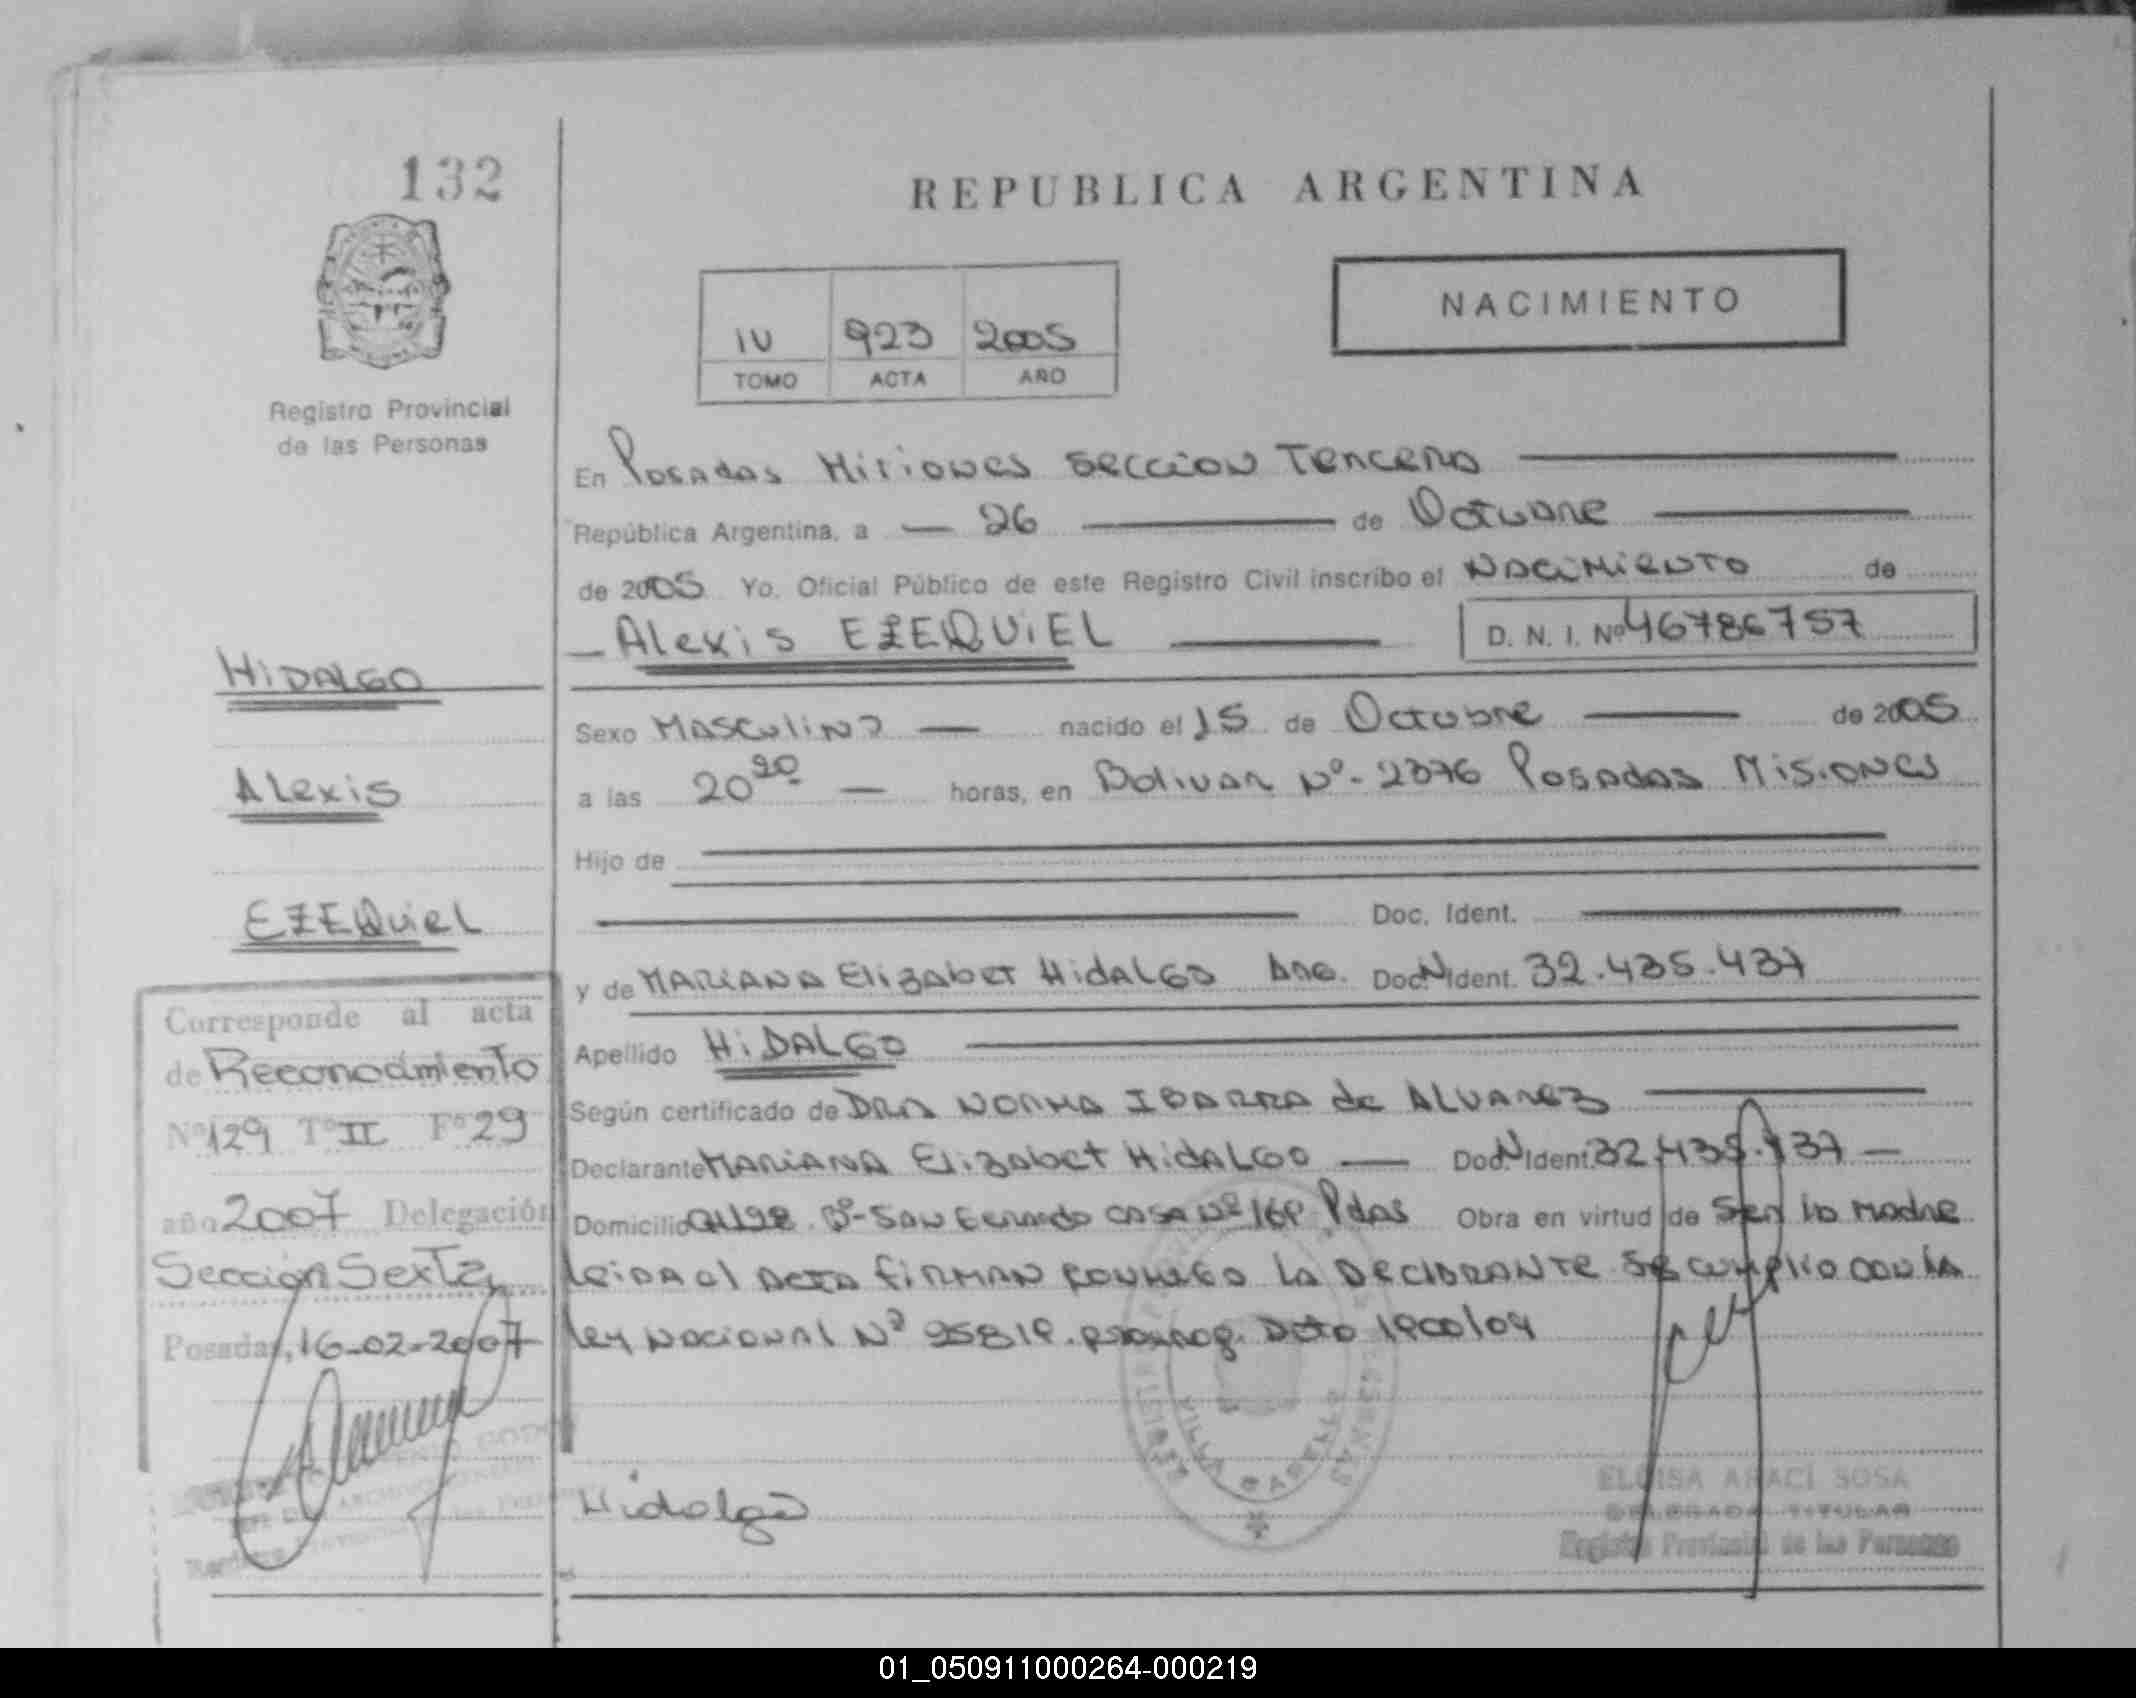 132
REPUBLICA ARGENTINA
NACIMIENTO
IV 923 2005
TOMO ACTA AÑO
Registro Provincial
de las Personas
En Posadas Misiones Seccion Tercera
República Argentina, a 26 de Octubre
de 2005 Yo. Oficial Público de este Registro Civil inscribo el NACIMIENTO de
Alexis EZEQUIEL D. N. I. Nº 46786757
HIDALGO
Alexis
EZEQUIEL
Sexo MASCULINO nacido el 15 de Octubre de 2005
a las 20 20 horas, en Bolivar Nº 2376 Posadas Misiones
Hijo de
Doc. Ident.
y de MARIANA Elizabet HidALGO ARG. Doc. N Ident. 32.435.437
Apellido HIDALGO
Según certificado de DRA NORMA IBARRA de ALVAREZ
Declarante MARIANA Elizabet HidALGO Doc. N Ident. 32.435.437
Domicilio Bº SAN Gerardo CASA Nº Pdas Obra en virtud de Ser la Madre
leida el Acta FIRMAN conmigo la DECLARANTE Se cumplio con la
ley Nacional Nº Dcto
Corresponde al acta
de Reconocimiento
Nº 129 Tº II Fº 29
año 2007 Delegación
Sección Sexta
Posadas, 16-02-2007
Hidalgo
VILLA CABELLO
ELOISA ARACI SOSA
DELEGADA TITULAR
Registro Provincial de las Personas
01_050911000264-000219